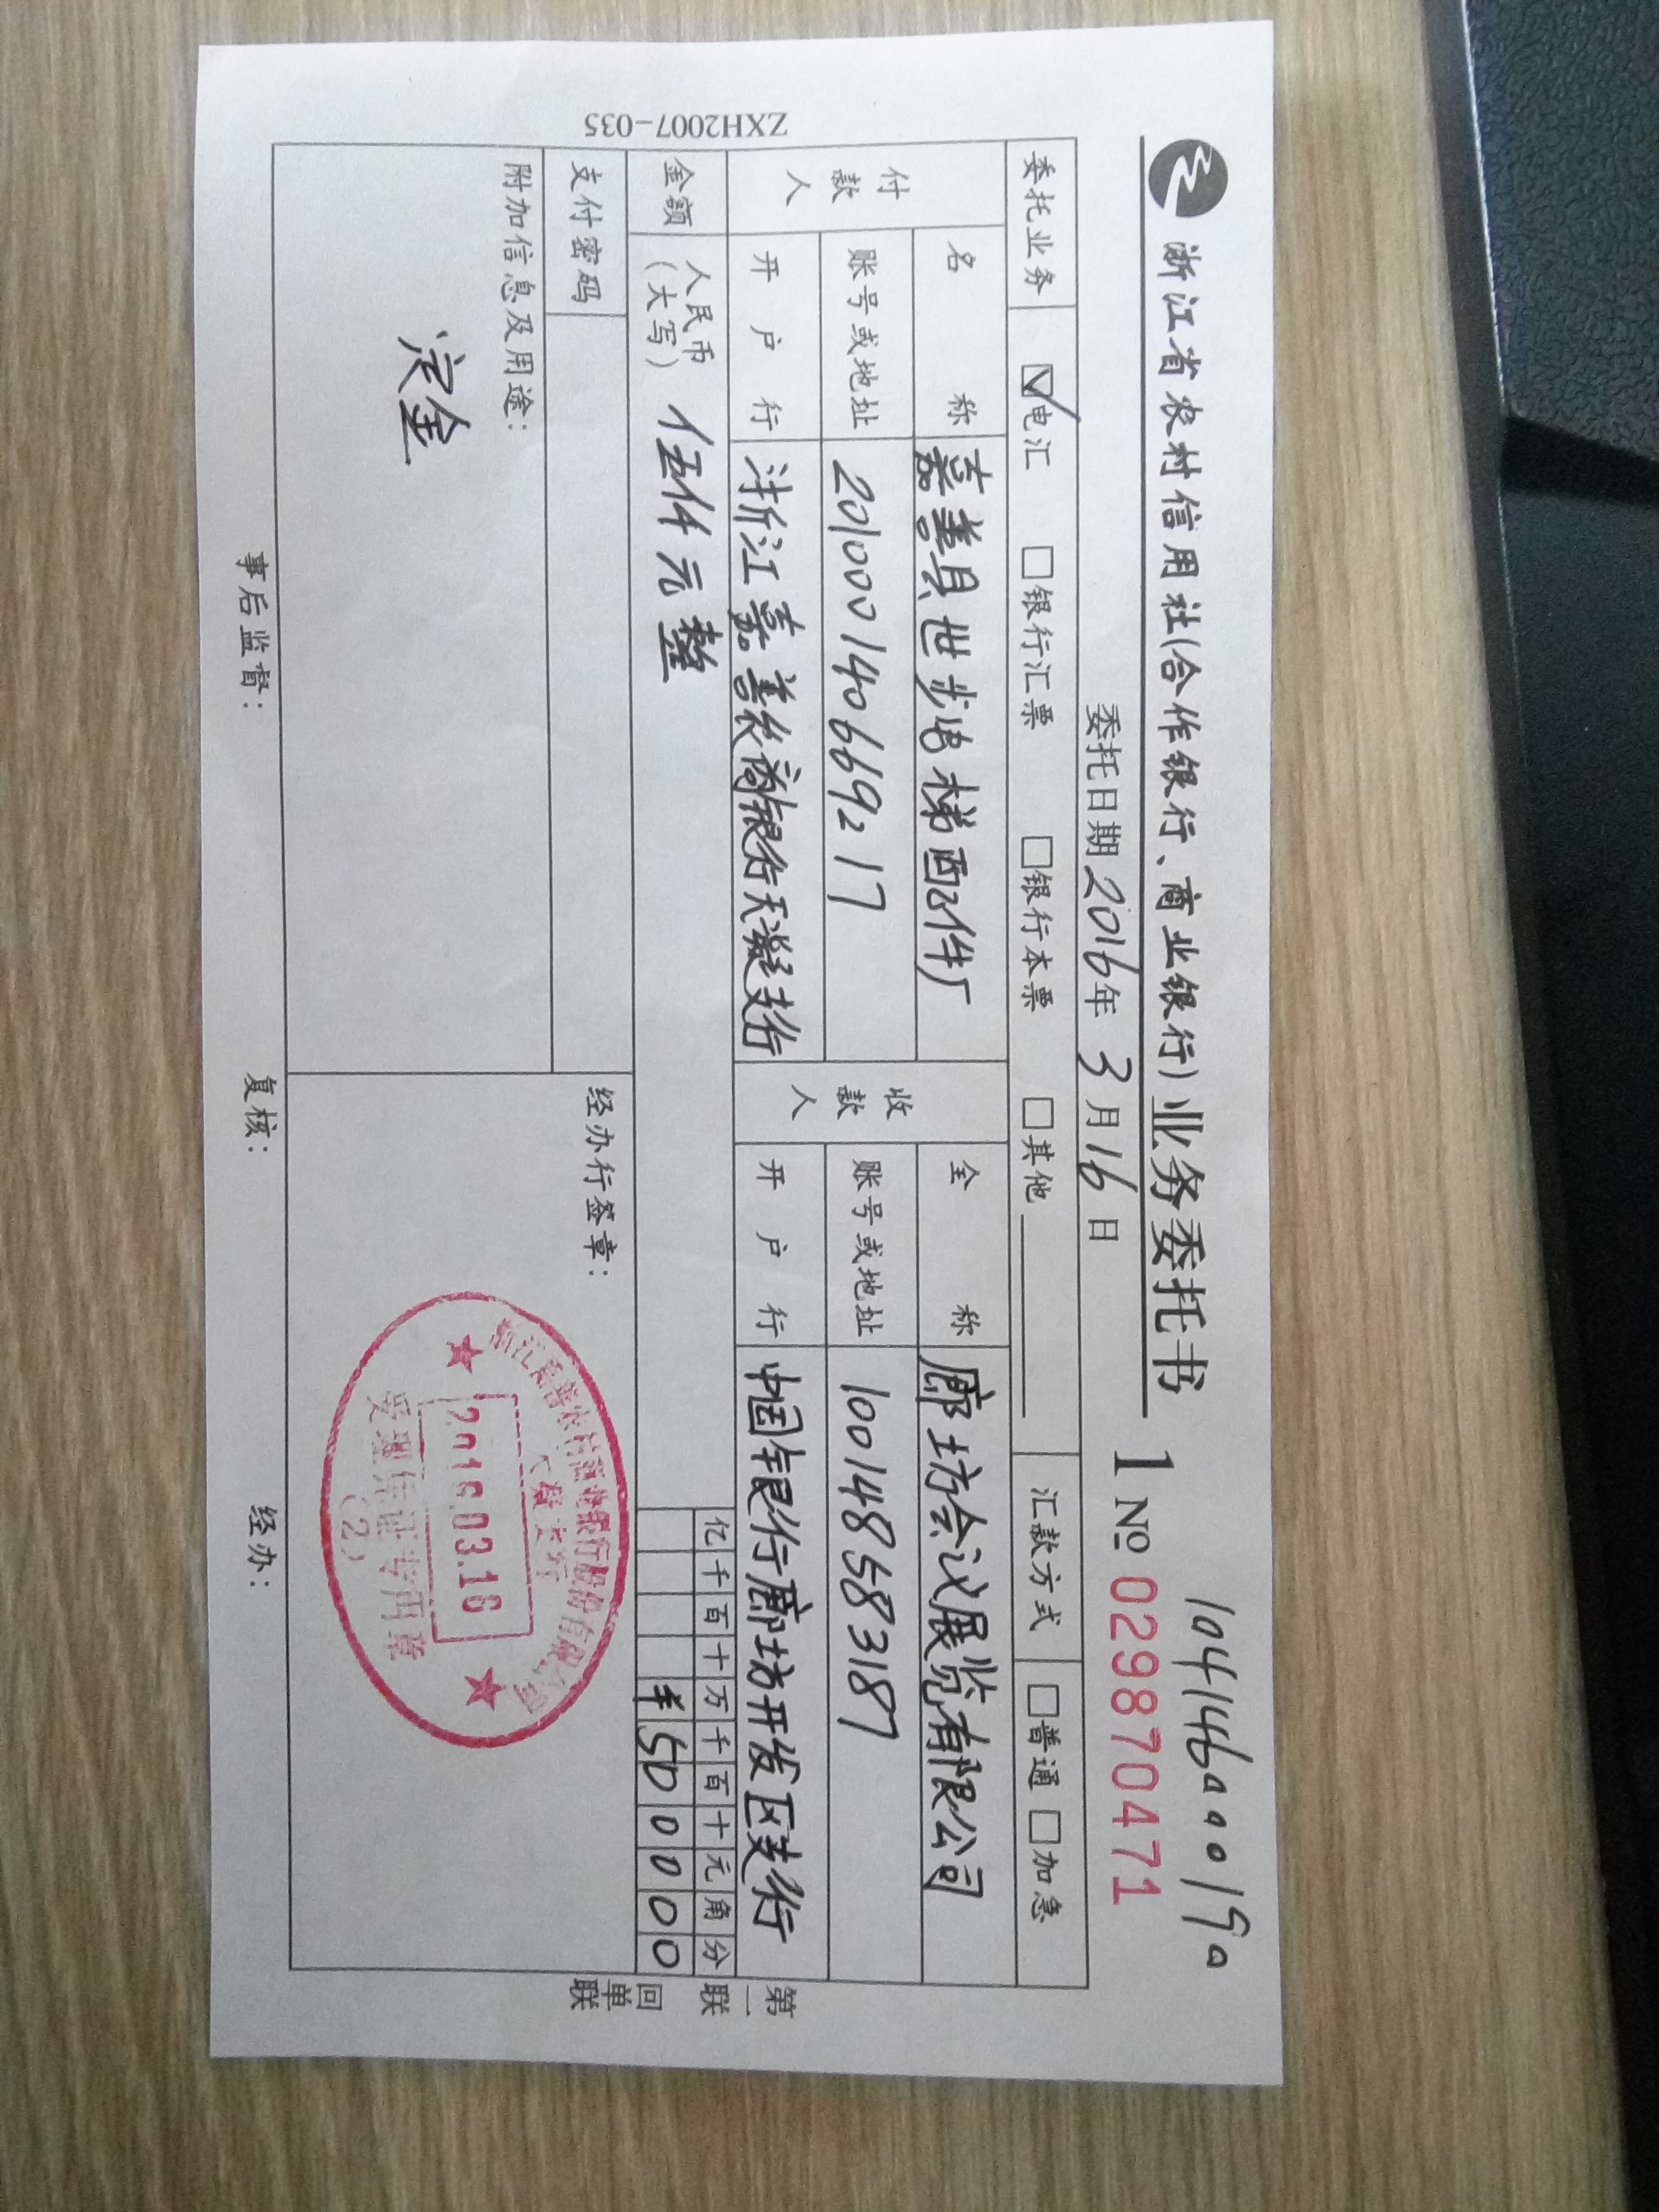 104146000190
浙江省农村信用社(合作银行、商业银行)业务委托书 1 № 02987047​1
委托日期2016年 3 月 16 日
委托业务 电汇 银行汇票 银行本票 其他 汇款方式 普通 加急
付款人 名称 嘉善县世步电梯配件厂 收款人 全称 廊坊会议展览有限公司
账号或地址 201000140669217 账号或地址 100148583187
开户行 浙江嘉善农商银行天凝支行 开户行 中国银行廊坊开发区支行
金额 人民币(大写) 伍仟元整 亿千百十万千百十元角分
¥500000
支付密码
附加信息及用途:
定金
经办行签章:
浙江嘉善农村商业银行股份有限公司
天凝支行
2016.03.16
受理凭证专用章
(2)
事后监督: 复核: 经办:
第一联 回单联
ZXH2007-035